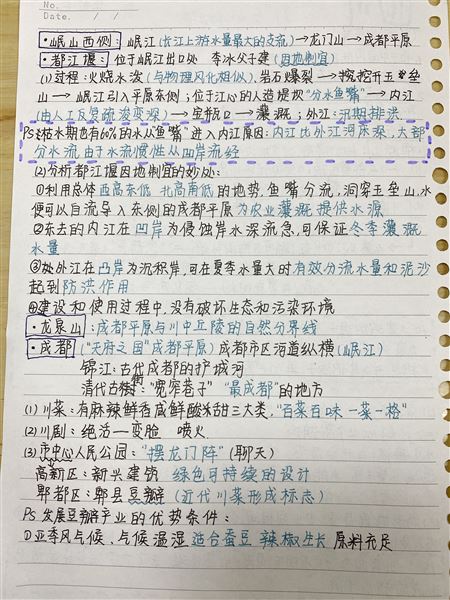 No.
Date. / /
·岷山西侧：岷江(长江上游水量最大的支流)→龙门山→成都平原
·都江堰：位于岷江出口处 李冰父子建(因地制宜)
(1)过程：火烧水浇(与物理风化相似)，岩石爆裂→挖挖开玉垒
山→岷江引入平原东侧；位于江心的人造堤坝"分水鱼嘴"→内江
(由人工反复疏浚变深)→宝瓶口→灌溉；外江：汛期排洪
PS：枯水期也有60%的水从"鱼嘴"进入内江原因：内江比外江河床深，大部
分水流由于水流惯性从凹岸流经
(2)分析都江堰因地制宜的妙处：
①利用总体西高东低 北高南低的地势，鱼嘴分流，洞穿玉垒山，水
便可以自流导入东侧的成都平原为农业灌溉提供水源
②东去的内江在凹岸为侵蚀岸水深流急，可保证冬季灌溉
水量
③外江在凸岸为沉积岸，可在夏季水量大时有效分流水量和泥沙
起到防洪作用
④建设和使用过程中，没有破坏生态和污染环境
·龙泉山：成都平原与川中丘陵的自然分界线
·成都("天府之国"成都平原)成都市区河道纵横(岷江)
锦江：古代成都的护城河
清代古街："宽窄巷子" "最成都"的地方
(1)川菜：有麻辣鲜香咸鲜酸甜三大类，"百菜百味 一菜一格"
(2)川剧：绝活—变脸 喷火
(3)市中心人民公园："摆龙门阵"(聊天)
高新区：新兴建筑 绿色可持续的设计
郫都区：郫县豆瓣(近代川菜形成标志)
PS 发展豆瓣产业的优势条件：
①亚季风气候，气候温湿适合蚕豆 辣椒生长 原料充足